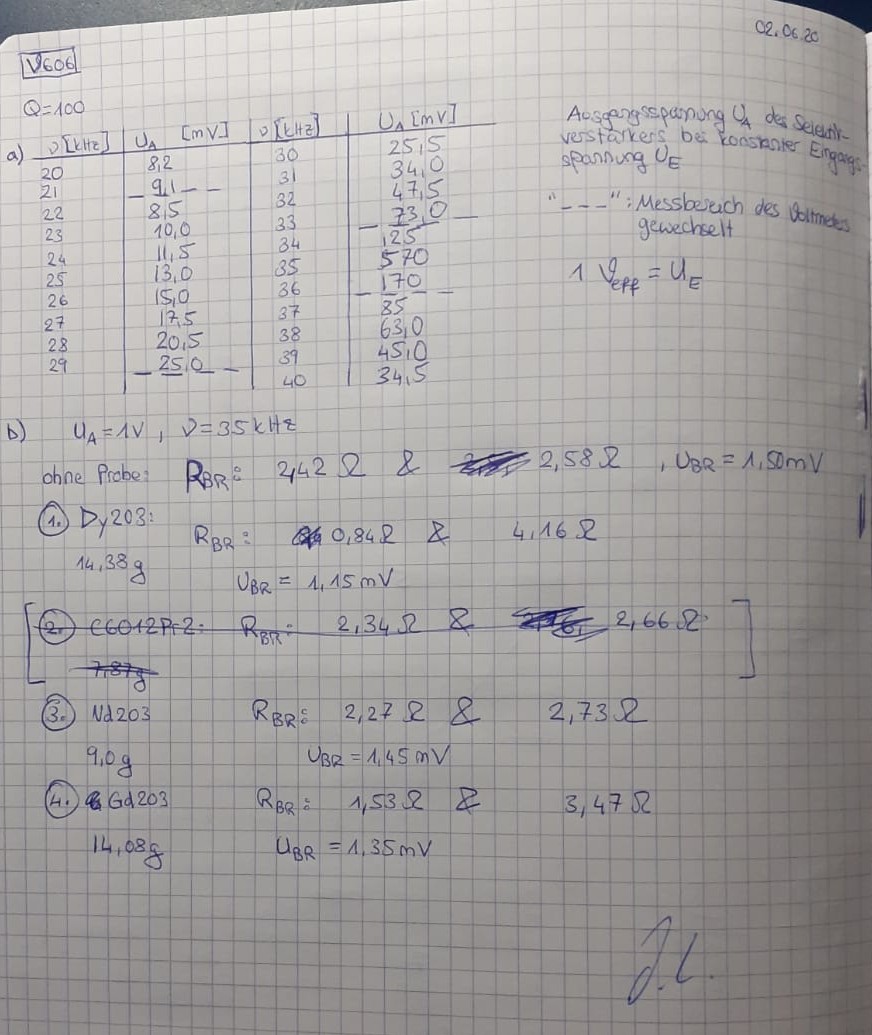 02.06.20
V606
Q=100
a) ν[kHz] | U_A [mV] | ν[kHz] | U_A [mV]
20 | 8,2 | 30 | 25,5
21 | 9,1 | 31 | 34,0
22 | 8,5 | 32 | 47,5
23 | 10,0 | 33 | 73,0
24 | 11,5 | 34 | 125
25 | 13,0 | 35 | 570
26 | 15,0 | 36 | 170
27 | 17,5 | 37 | 85
28 | 20,5 | 38 | 63,0
29 | 25,0 | 39 | 45,0
40 | 34,5
Ausgangsspannung U_A des Selektiv-
verstärkers bei konstanter Eingangs-
spannung U_E
"---": Messbereich des Voltmeters
gewechselt
1 V_eff = U_E
b) U_A=1V, ν=35kHz
ohne Probe: R_BR: 2,42 Ω & 2,58 Ω, U_BR = 1,50mV
1. Dy203: R_BR: 0,84Ω & 4,16 Ω
14,38g
U_BR = 1,15mV
[2. C6012Pr2: R_BR: 2,34Ω & 2,66Ω]
7,87g
3. Nd203 R_BR: 2,27 Ω & 2,73Ω
9,0g U_BR = 1,45mV
4. Gd203 R_BR: 1,53Ω & 3,47Ω
14,08g U_BR = 1,35mV